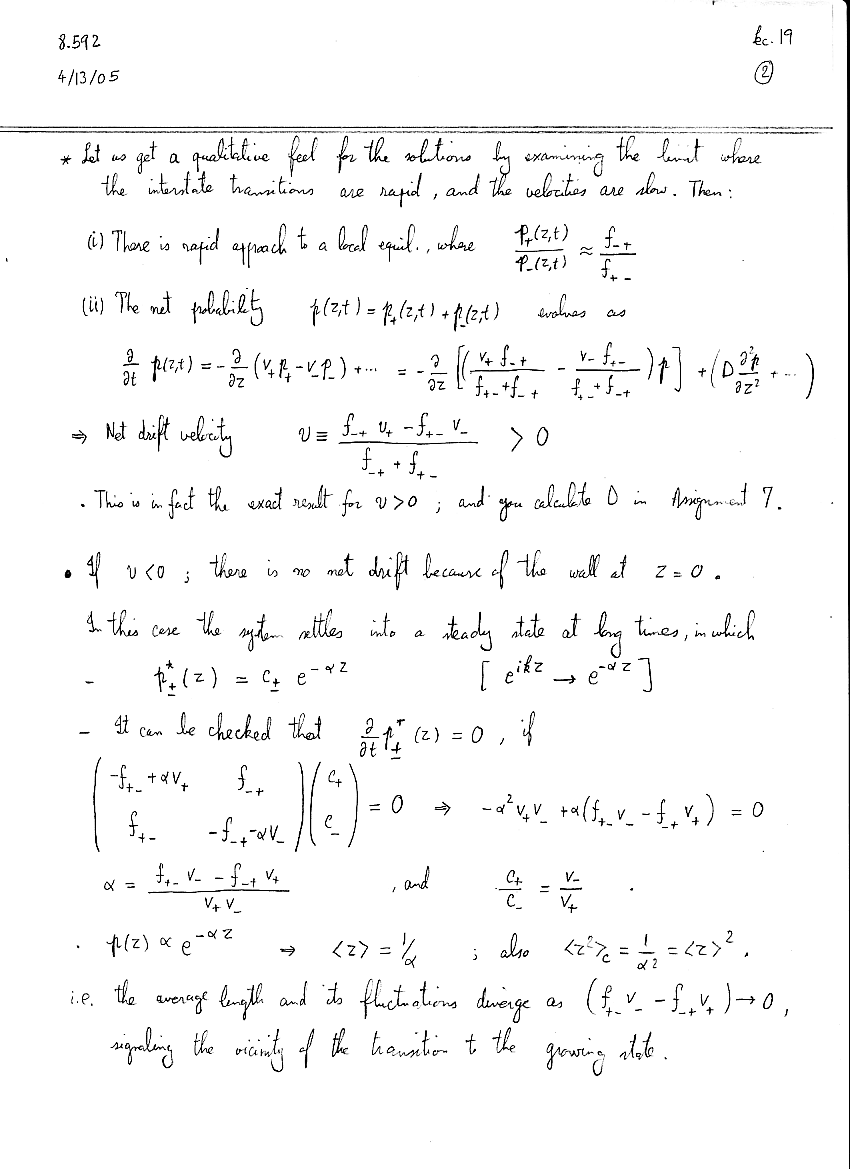 8.592
lec. 19
4/13/05
②
* Let us get a qualitative feel for the solutions by examining the limit where
the interstate transitions are rapid, and the velocities are slow. Then:
(i) There is rapid approach to a local equil., where p₊(z,t)/p₋(z,t) ≈ f₋₊/f₊₋
(ii) The net probability p(z,t) = p₊(z,t) + p₋(z,t) evolves as
∂/∂t p(z,t) = -∂/∂z (v₊p₊ - v₋p₋) + ··· = -∂/∂z [(v₊ f₋₊/(f₊₋ + f₋₊) - v₋ f₊₋/(f₊₋ + f₋₊)) p] + (D ∂²p/∂z² + ···)
⇒ Net drift velocity v ≡ (f₋₊ v₊ - f₊₋ v₋)/(f₋₊ + f₊₋) > 0
· This is in fact the exact result for v>0 ; and you calculate D in Assignment 7.
• If v<0 ; there is no net drift because of the wall at z=0.
In this case the system settles into a steady state at long times, in which
- p±*(z) = c± e^{-αz} [e^{ikz} → e^{-αz}]
- It can be checked that ∂/∂t p±*(z) = 0, if
( -f₊₋ + αv₊  f₋₊ ; f₊₋  -f₋₊ - αv₋ ) ( c₊ ; c₋ ) = 0 ⇒ -α²v₊v₋ + α(f₊₋ v₋ - f₋₊ v₊) = 0
α = (f₊₋ v₋ - f₋₊ v₊)/(v₊ v₋) , and c₊/c₋ = v₋/v₊ .
· p(z) ∝ e^{-αz} ⇒ <z> = 1/α ; also <z²>c = 1/α² = <z>².
i.e. the average length and its fluctuations diverge as (f₊₋v₋ - f₋₊v₊) → 0,
signaling the vicinity of the transition to the growing state.